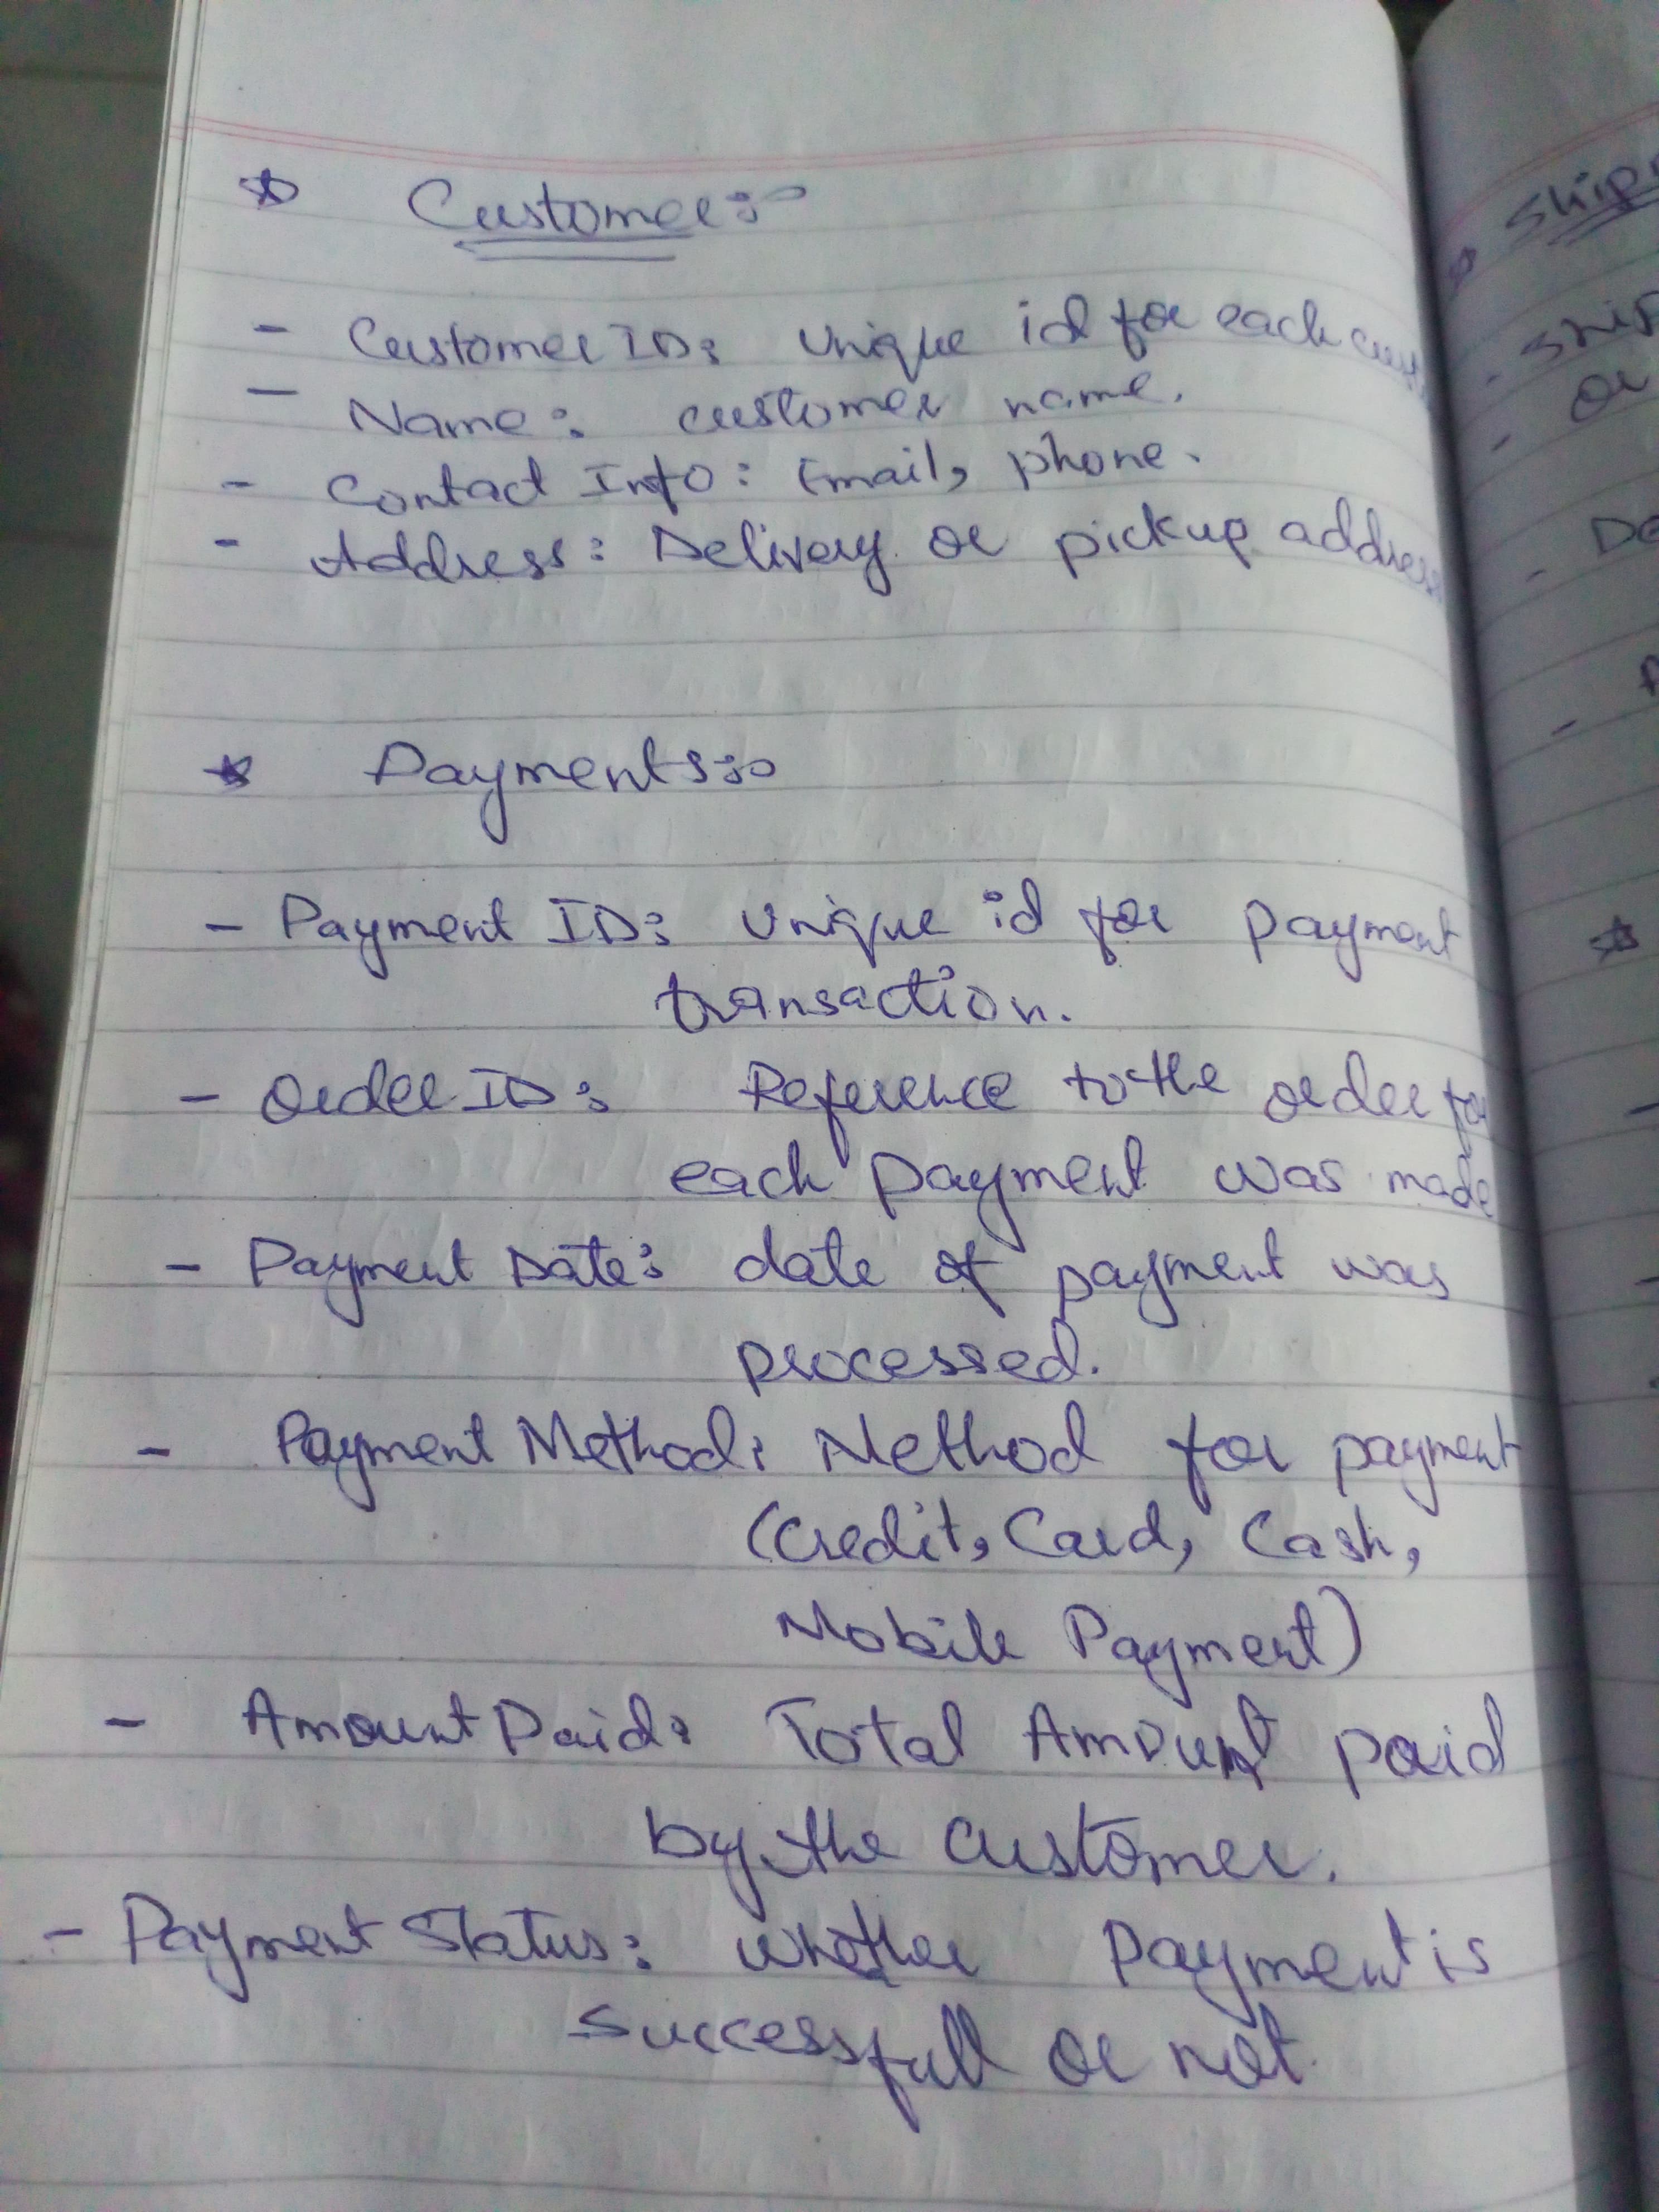 ☆ Customer:-
- CustomerID: Unique id for each
- Name: customer name.
- Contact Info: Email, phone.
- Address: Delivery or pickup address
★ Payments:-
- Payment ID: Unique id for payment
transaction.
- OrderID: Reference to the order for
each payment was made
- Payment Date: date of payment was
processed.
- Payment Method: Method for payment
(Credit, Card, Cash,
Mobile Payment)
- Amount Paid: Total Amount paid
by the customer.
- Payment Status: whether Payment is
Successfull or not.